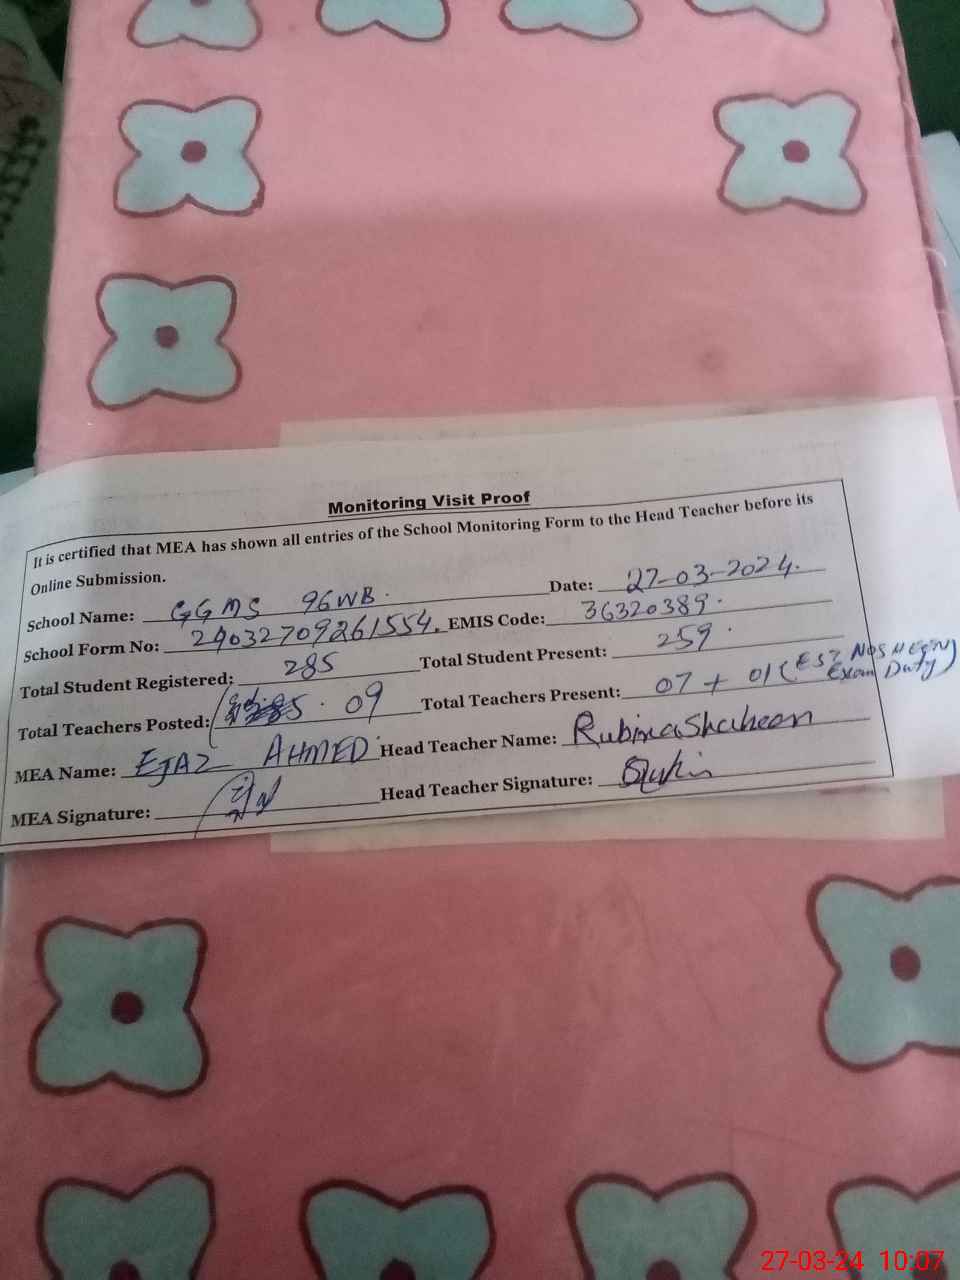 Monitoring Visit Proof
It is certified that MEA has shown all entries of the School Monitoring Form to the Head Teacher before its
Online Submission.
Date: 27-03-2024.
School Name: GGMS 96WB.
School Form No: 24032709261554. EMIS Code: 36320389.
Total Student Registered: 285 Total Student Present: 259.
Total Teachers Posted: 09 Total Teachers Present: 07 + 01 (ESE NOSHEEN
Exam Duty)
MEA Name: EJAZ AHMED Head Teacher Name: Rubina Shaheen
MEA Signature: Head Teacher Signature:
27-03-24 10:07